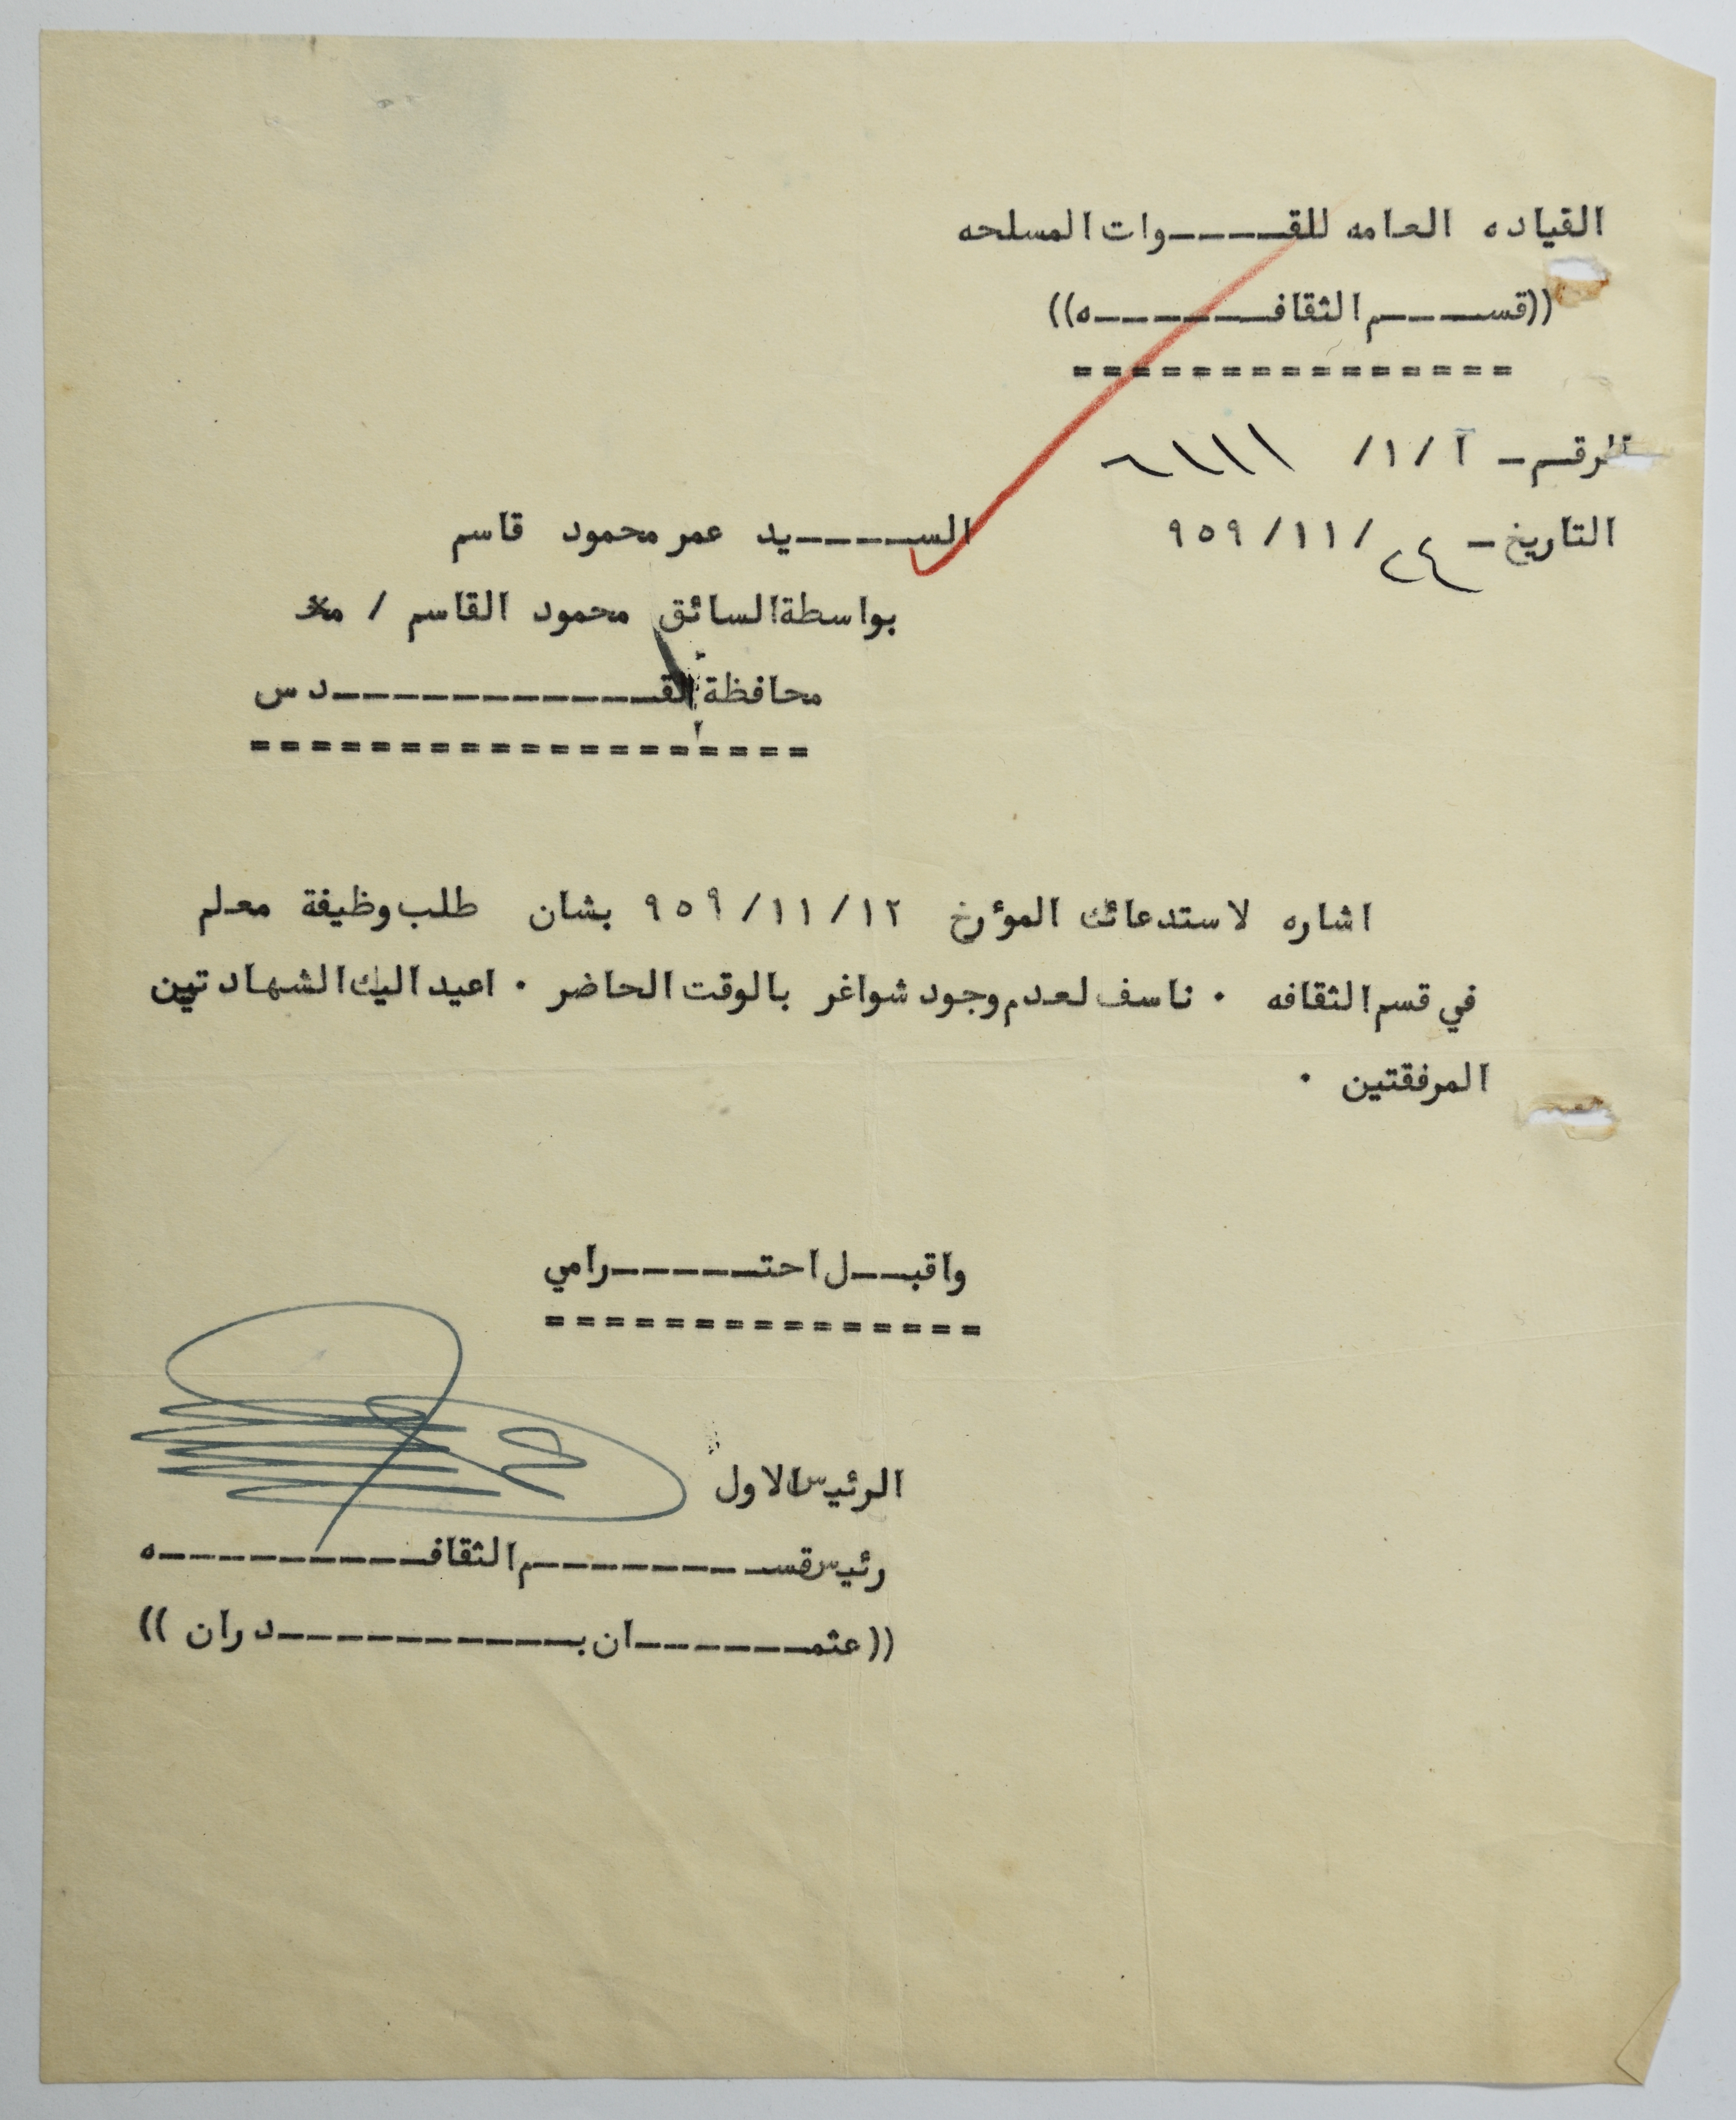 القياده العامه للقـــــوات المسلحه
((قســـــم الثقافــــــــه))
الرقم - آ / ١ /
التاريخ - ٢٤ / ١١ / ٩٥٩
الســــــيد عمر محمود قاسم
بواسطة السائق محمود القاسم /
محافظة القــــــــــــــدس
اشاره لاستدعائك المؤرخ ١٢ / ١١ / ٩٥٩ بشان طلب وظيفة معلم
في قسم الثقافه ٠ ناسف لعدم وجود شواغر بالوقت الحاضر ٠ اعيد اليك الشهادتين
المرفقتين ٠
واقبــل احتــــــرامي
الرئيس الاول
رئيس قســــــــــم الثقافــــــــــــه
((عثمـــــــــان بــــــــــــدران))